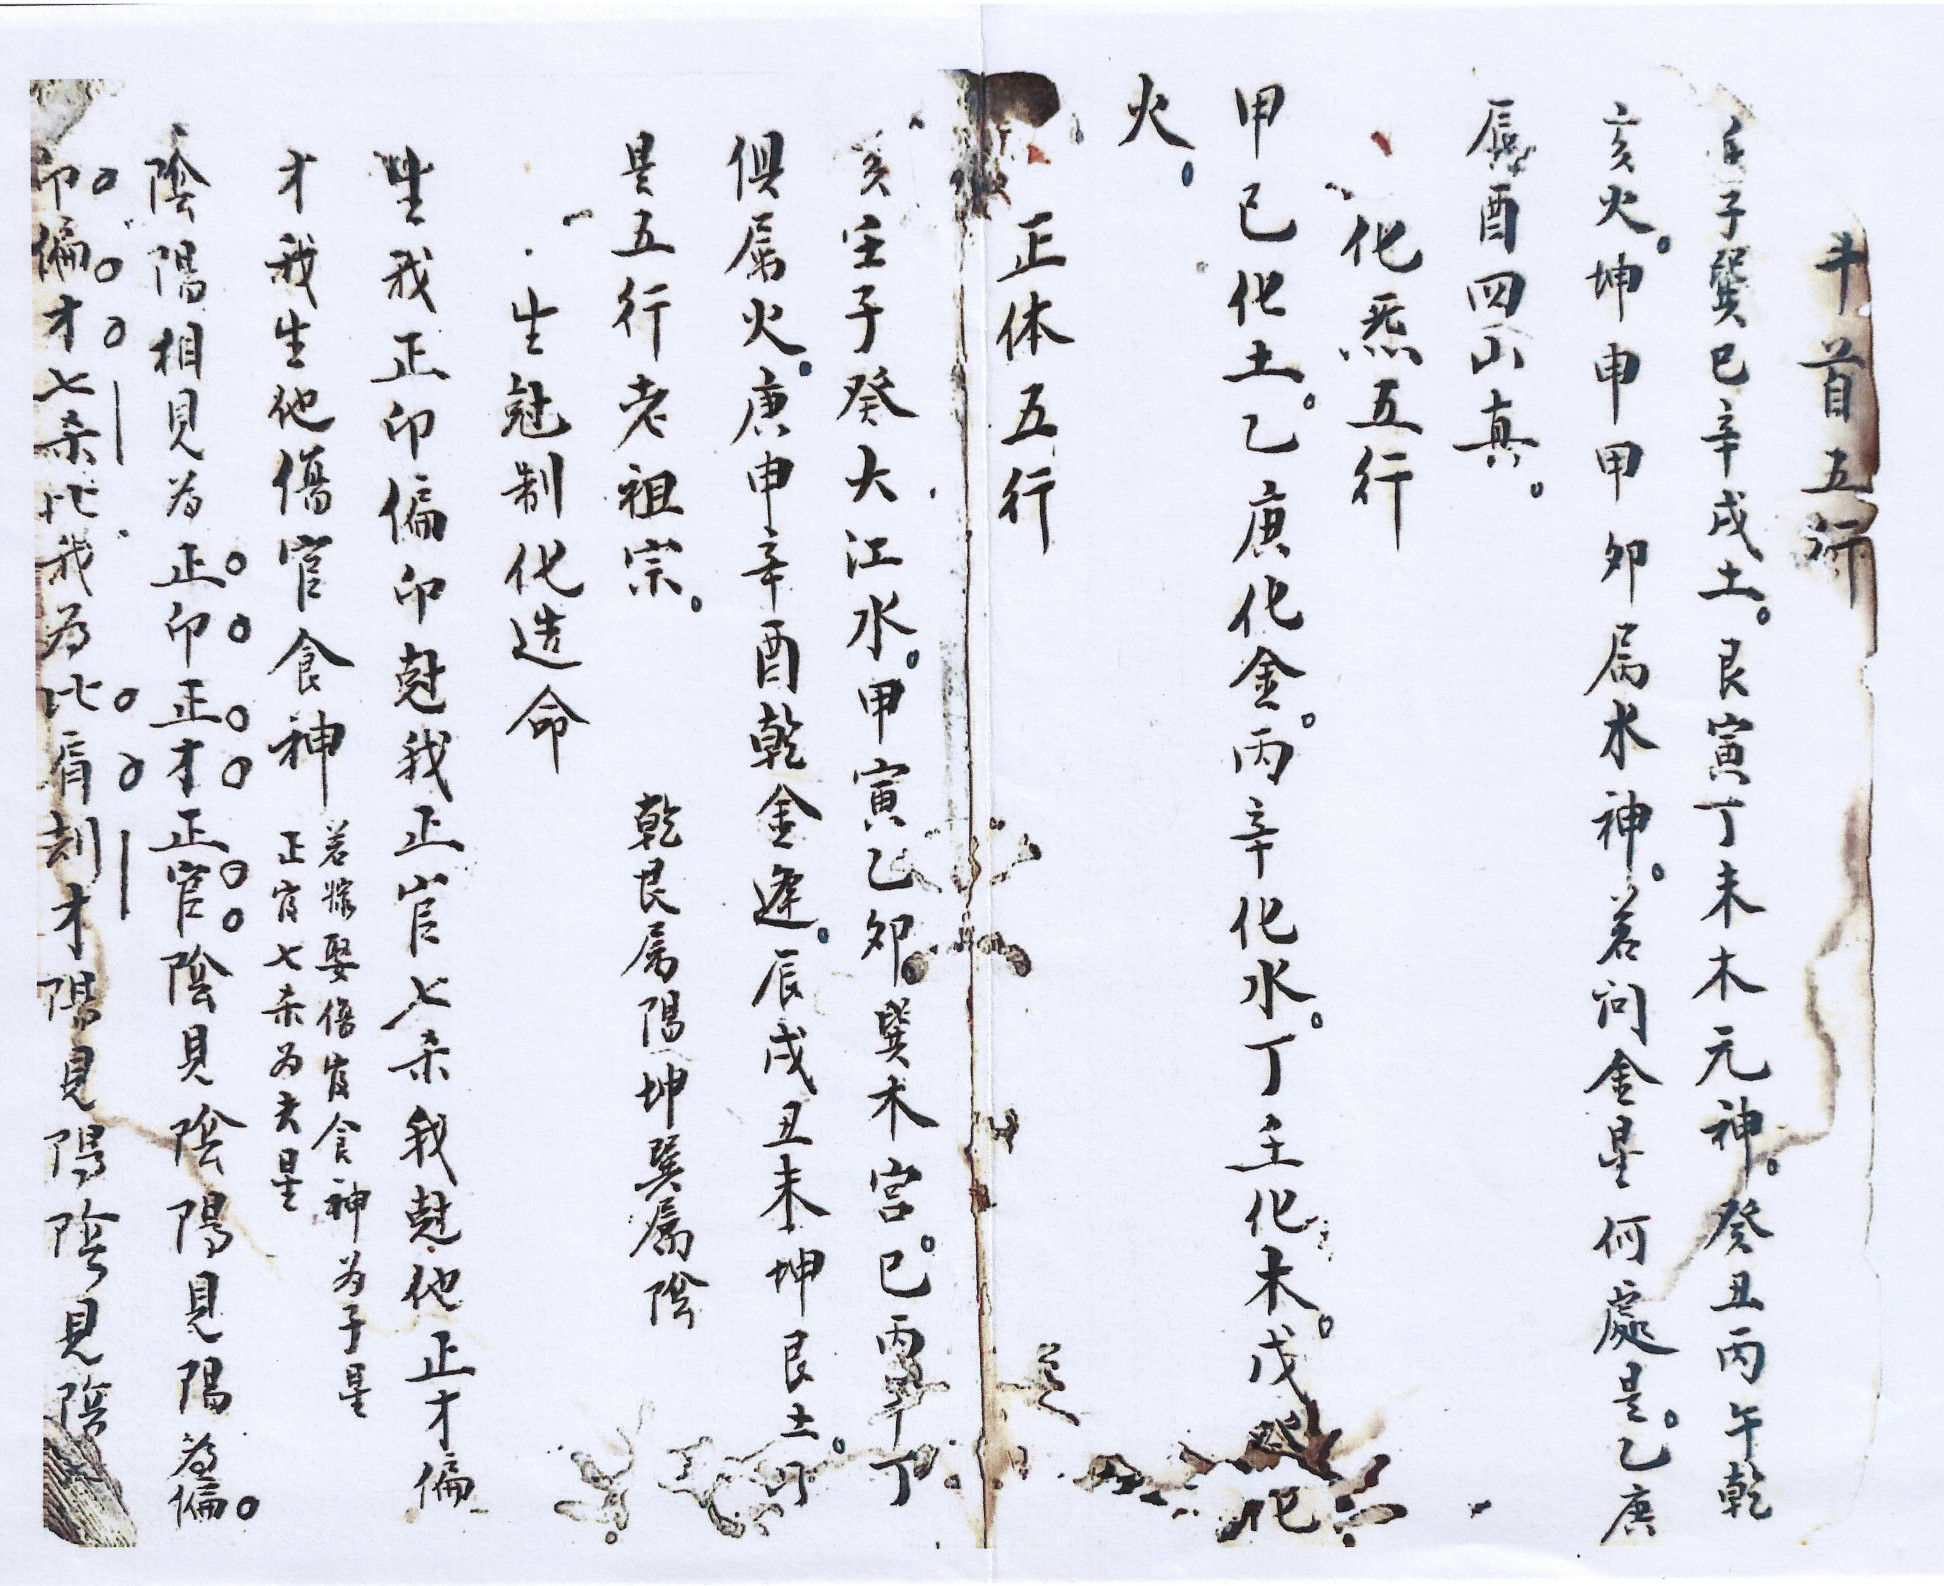 斗首五行
壬子巽巳辛戌土。艮寅丁未木元神。癸丑丙午乾
亥火。坤申甲卯属水神。若问金星何處是。乙庚
辰酉四山真。
化炁五行
甲己化土。乙庚化金。丙辛化水。丁壬化木。戊癸化
火。
正体五行
亥壬子癸大江水。甲寅乙卯巽木宫。巳丙午丁
俱属火。庚申辛酉乾金逢。辰戌丑未坤艮土。此
是五行老祖宗。 乾艮属陽 坤巽属陰
生尅制化造命
生我正印偏印尅我正官七杀我尅他正才偏
才我生他傷官食神
若嫁娶傷官食神为子星
正官七杀为夫星
陰陽相見为正印正才正官陰見陰陽見陽為偏。
印偏才七杀比我为比肩刦才陽見陽陰見陰